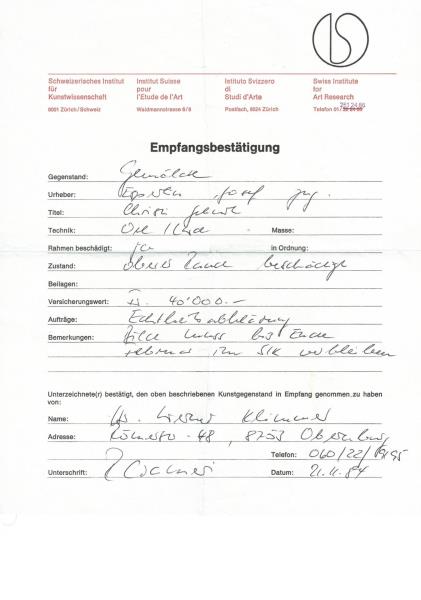 Schweizerisches Institut für Kunstwissenschaft
8001 Zürich/Schweiz
Institut Suisse pour l'Etude de l'Art
Waldmannstrasse 6/8
Istituto Svizzero di Studi d'Arte
Postfach, 8024 Zürich
Swiss Institute for Art Research
Telefon 01/ 251 24 86
Empfangsbestätigung
Gegenstand: Gemälde
Urheber: Josef jrg.
Titel: Christi Geburt
Technik: Oel Masse:
Rahmen beschädigt: ja in Ordnung:
Zustand: oberer Rand beschädigt
Beilagen:
Versicherungswert: 40'000.-
Aufträge: Echtheitsabklärung
Bemerkungen: muss bis Ende
Februar im SIK verbleiben
Unterzeichnete(r) bestätigt, den oben beschriebenen Kunstgegenstand in Empfang genommen zu haben
von:
Name: Hr. Werner
Adresse: 48, 8753 Obernburg
Telefon: 060/22/
Unterschrift: Datum: 21.11.84